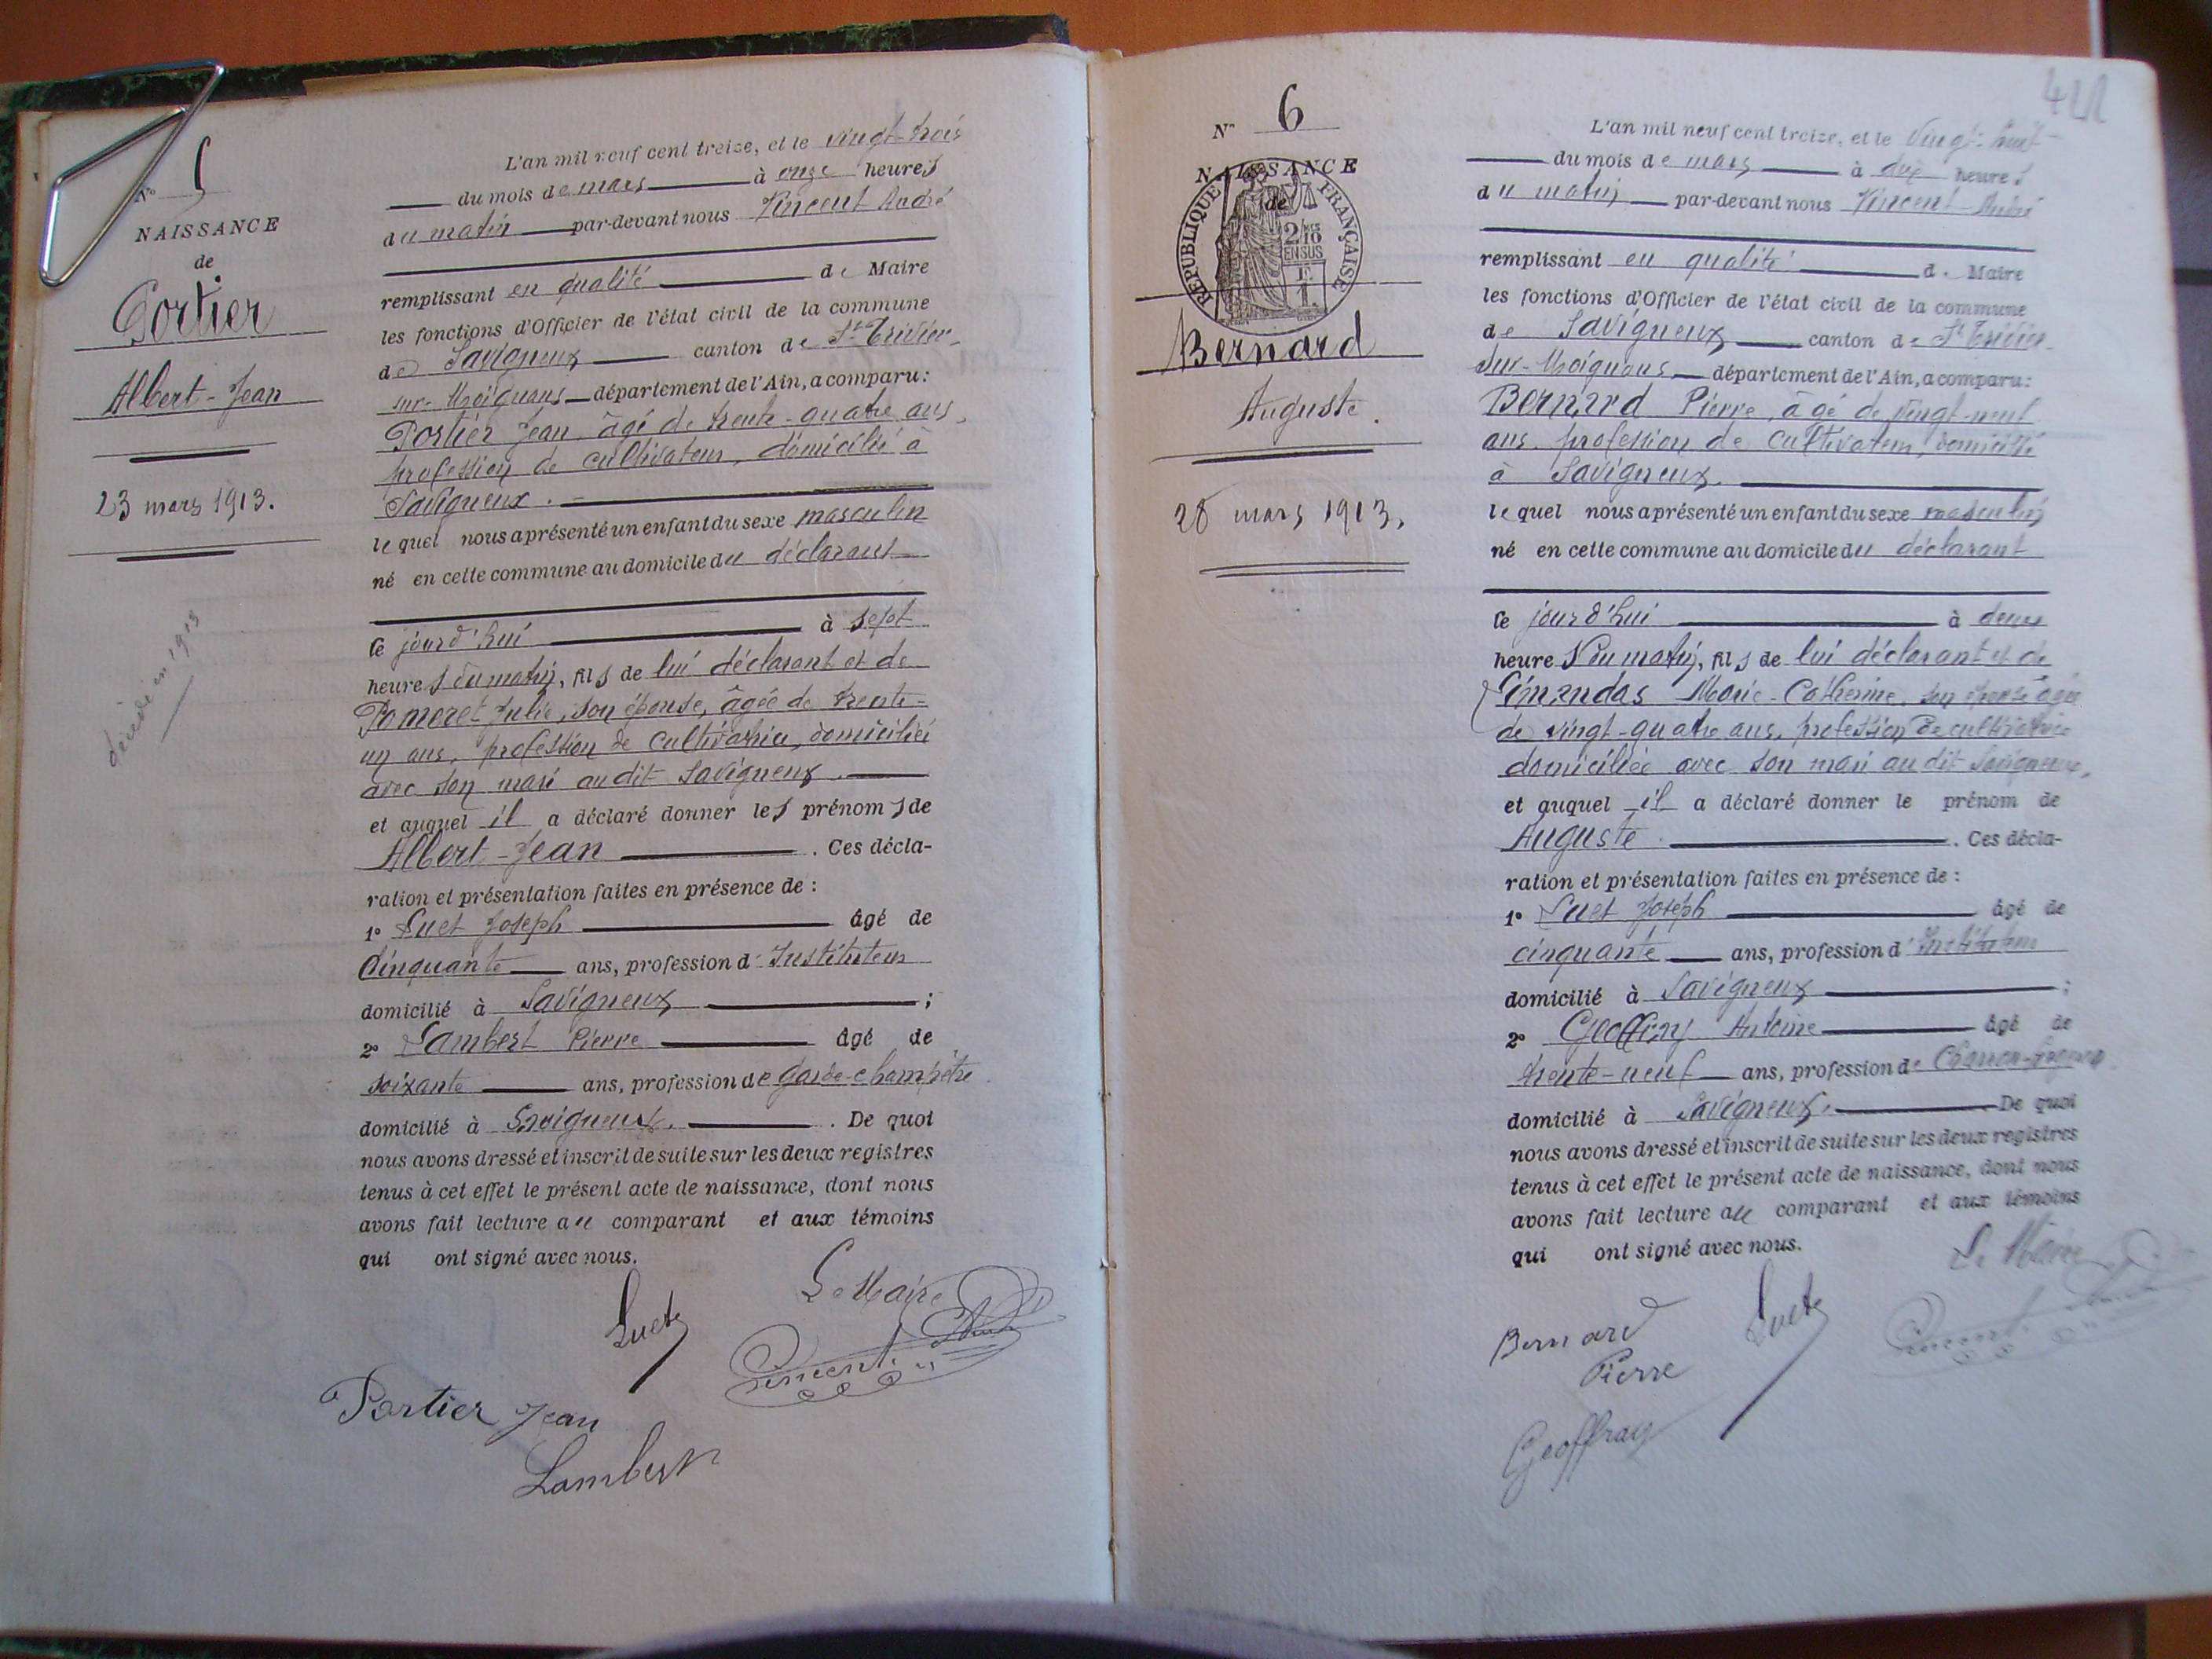 N° 5
NAISSANCE
de
Portier
Albert-Jean
23 mars 1913.
décédé en 1913
L'an mil neuf cent treize, et le vingt-trois
du mois de mars à onze heures
du matin par-devant nous Vincent André
remplissant en qualité de Maire
les fonctions d'Officier de l'état civil de la commune
de Savigneux canton de St Trivier-
sur-Moignans département de l'Ain, a comparu:
Portier Jean, âgé de trente-quatre ans,
profession de cultivateur, domicilié à
Savigneux.
lequel nous a présenté un enfant du sexe masculin
né en cette commune au domicile du déclarant
ce jourd'hui à sept
heures du matin, fils de lui déclarant et de
Pomeret Julie, son épouse, âgée de trente-
un ans, profession de cultivatrice, domiciliée
avec son mari au dit Savigneux.
et auquel il a déclaré donner les prénoms de
Albert-Jean . Ces décla-
ration et présentation faites en présence de :
1° Luet Joseph âgé de
cinquante ans, profession d'Instituteur
domicilié à Savigneux ;
2° Lambert Pierre âgé de
soixante ans, profession de garde-champêtre
domicilié à Savigneux. . De quoi
nous avons dressé et inscrit de suite sur les deux registres
tenus à cet effet le présent acte de naissance, dont nous
avons fait lecture au comparant et aux témoins
qui ont signé avec nous.
Le Maire
Luet
Vincent André
Portier Jean
Lambert
N° 6
NAISSANCE
de
REPUBLIQUE FRANÇAISE
2/10
EN SUS
Bernard
Auguste.
28 mars 1913.
L'an mil neuf cent treize, et le vingt-huit
du mois de mars à dix heures
du matin par-devant nous Vincent André
remplissant en qualité de Maire
les fonctions d'Officier de l'état civil de la commune
de Savigneux canton de St Trivier-
sur-Moignans département de l'Ain, a comparu:
Bernard Pierre, âgé de vingt-neuf
ans, profession de cultivateur, domicilié
à Savigneux.
lequel nous a présenté un enfant du sexe masculin
né en cette commune au domicile du déclarant
ce jourd'hui à deux
heures du matin, fils de lui déclarant et de
Marie-Catherine, son épouse âgée
de vingt-quatre ans, profession de cultivatrice
domiciliée avec son mari au dit Savigneux,
et auquel il a déclaré donner le prénom de
Auguste. . Ces décla-
ration et présentation faites en présence de :
1° Luet Joseph âgé de
cinquante ans, profession d'Instituteur
domicilié à Savigneux ;
2° Geoffray Antoine âgé de
trente-neuf ans, profession de
domicilié à Savigneux. De quoi
nous avons dressé et inscrit de suite sur les deux registres
tenus à cet effet le présent acte de naissance, dont nous
avons fait lecture au comparant et aux témoins
qui ont signé avec nous.
Le Maire
Bernard
Pierre
Luet
Vincent André
Geoffray